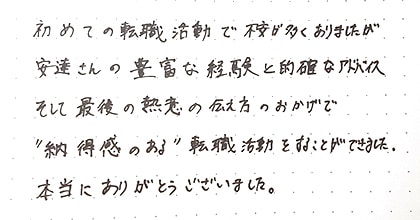 初めての転職活動で不安が多くありましたが
安達さんの豊富な経験と的確なアドバイス
そして最後の熱意の伝え方のおかげで
"納得感のある"転職活動をすることができました.
本当にありがとうございました。